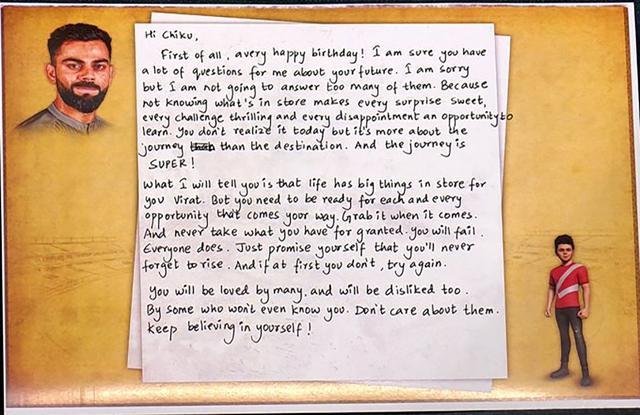 Hi Chiku,
First of all, a very happy birthday! I am sure you have
a lot of questions for me about your future. I am sorry
but I am not going to answer too many of them. Because
not knowing what's in store makes every surprise sweet,
every challenge thrilling and every disappointment an opportunity to
learn. You don't realize it today but it's more about the
journey than the destination. And the journey is
SUPER!
What I will tell you is that life has big things in store for
you Virat. But you need to be ready for each and every
opportunity that comes your way. Grab it when it comes.
And never take what you have for granted. You will fail.
Everyone does. Just promise yourself that you'll never
forget to rise. And if at first you don't, try again.
You will be loved by many. and will be disliked too.
By some who won't even know you. Don't care about them.
Keep believing in yourself!